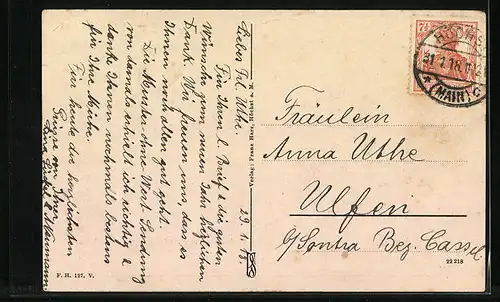 29.1.18.
Liebes Frl. Uthe.
Für Ihren l. Brief & die guten
Wünsche zum neuen Jahr herzlichen
Dank. Wir freuen uns, dass es
Ihnen noch allen gut geht.
Die Muster-ohne-Wert-Sendung
von damals erhielt ich richtig &
danke Ihnen nochmals bestens
für Ihre Mühe.
Für heute die herzlichsten
Grüsse von Ihrer
F. H. 127. V.
7½
HÖCHST
31.1.18.
* (MAIN) C
Fräulein
Anna Uthe
Ulfen
b/Sontra Bez. Cassel
22218